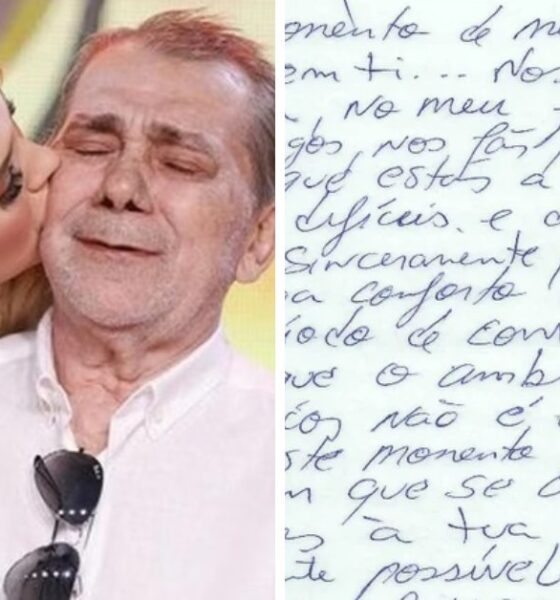 omento de m
em ti... No
, no meu
gos, nos fãs
que estás a
difíceis. e a
sinceramente
a conforto
íodo de con
que o amb
cos não é
ste momento
que se a
s à tua
te possível